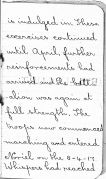 is indulged in. These
exercises continued
until April, further
reinforcements had
arrived and the batt
alion was again at
full strength. The
troops now commenced
marching and entered
on the 8-4-17.
Whispers had reached